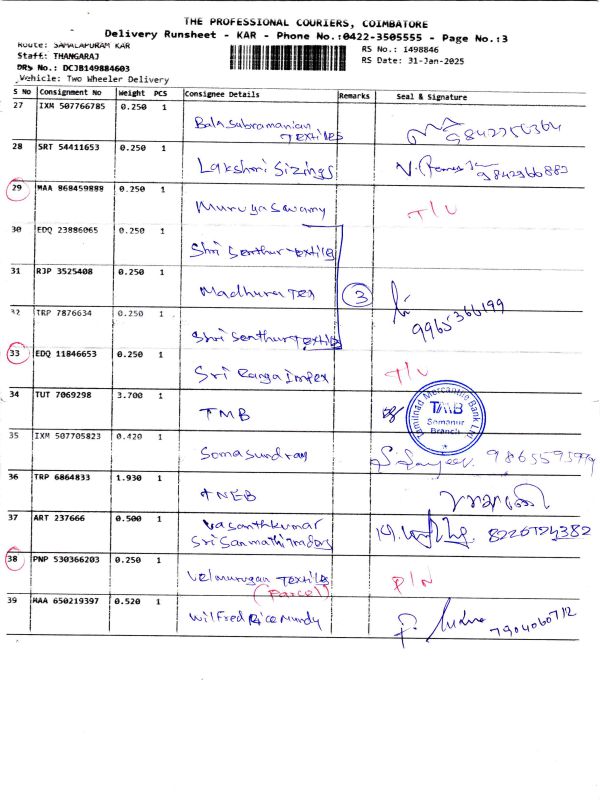 THE PROFESSIONAL COURIERS, COIMBATORE
Delivery Runsheet - KAR - Phone No.:0422-3505555 - Page No.:3
Route: SAMALAPURAM KAR
RS No.: 1498846
Staff: THANGARAJ
RS Date: 31-Jan-2025
DRS No.: DCJB149884603
Vehicle: Two Wheeler Delivery
S No Consignment No Weight PCS Consignee Details Remarks Seal & Signature
27 IXM 507766785 0.250 1
Balasubramanian
Textiles
28 SRT 54411653 0.250 1
Lakshmi Sizings
29 MAA 868459888 0.250 1
Murugaswamy
30 EDQ 23886065 0.250 1
Shri Senthur Textiles
31 RJP 3525408 0.250 1
Madhura Tex 3
9965366199
32 TRP 7876634 0.250 1
Shri Senthur Textiles
33 EDQ 11846653 0.250 1
Sri Ranga Impex
34 TUT 7069298 3.700 1
TMB
Tamilnad Mercantile Bank Ltd
TMB
Somanur
Branch
35 IXM 507705823 0.420 1
Somasundram
36 TRP 6864833 1.930 1
TNEB
37 ART 237666 0.500 1
Vasanthkumar
Sri Sanmathi Traders
8226724382
38 PNP 530366203 0.250 1
Velmurugan Textiles
(Parcel)
39 MAA 650219397 0.520 1
Wilfred Rice Mundy
7904060712